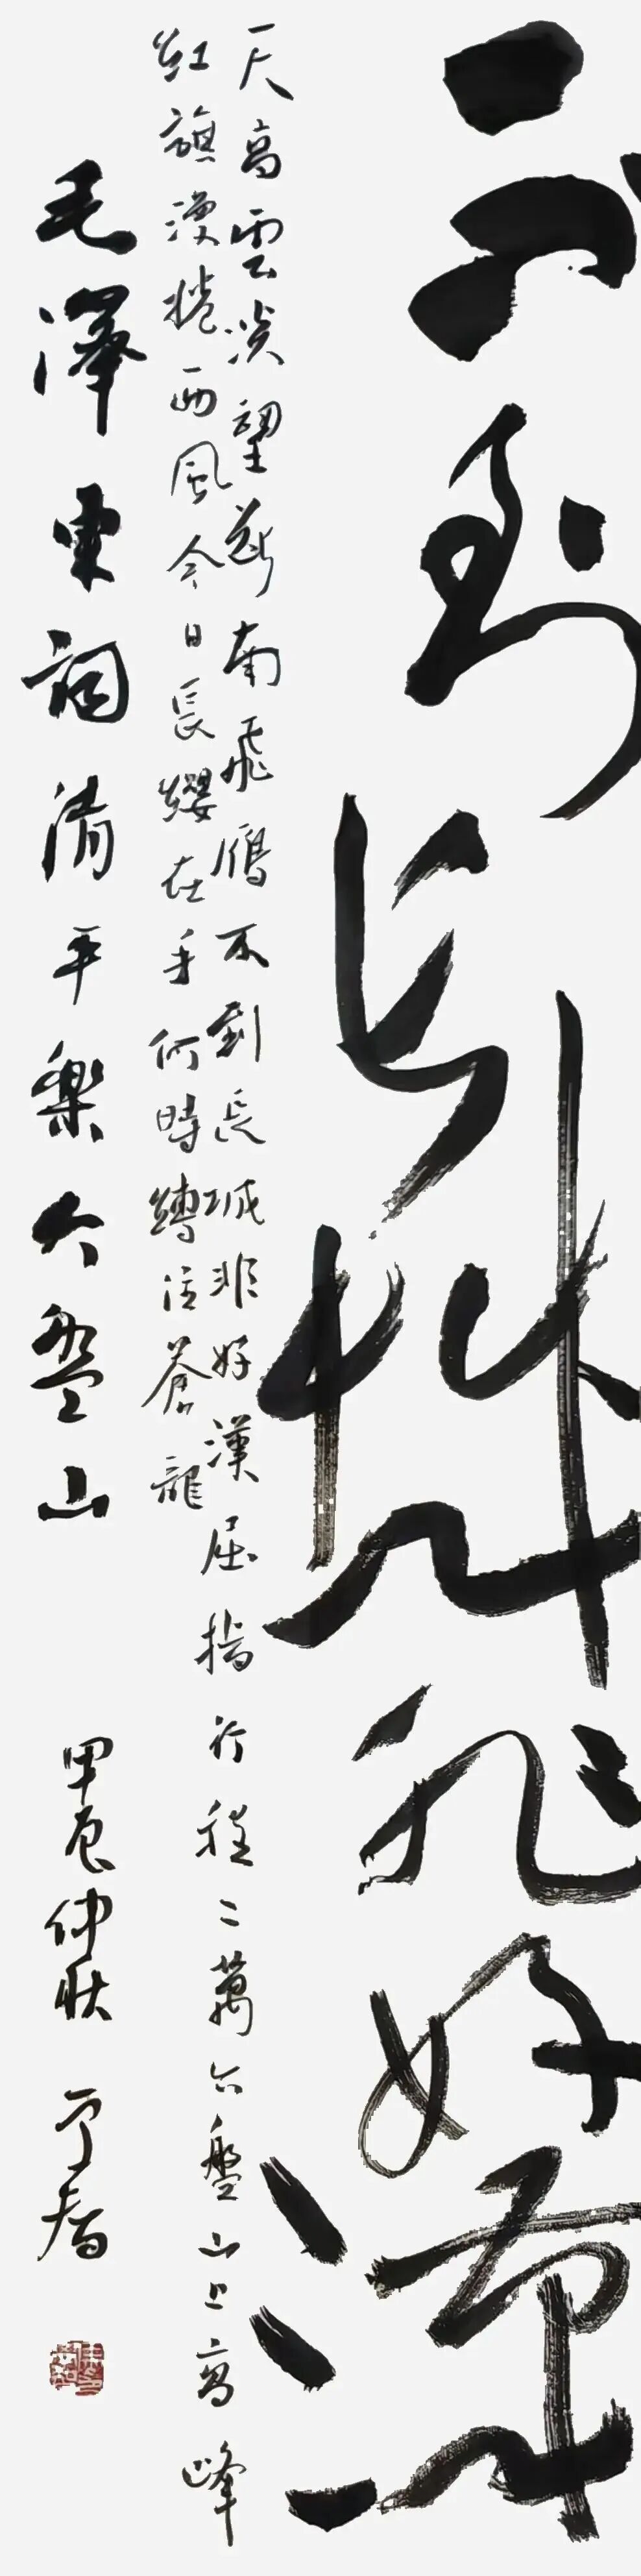 不到长城非好漢
天高雲淡望断南飛雁不到長城非好漢屈指行程二萬六盤山上高峰
紅旗漫捲西風今日長纓在手何時縛住蒼龍
毛澤東詞清平樂六盤山
甲辰仲秋